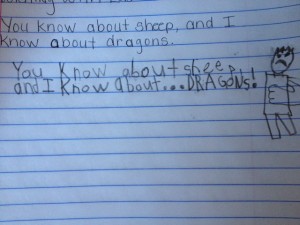 You know about sheep, and I
know about dragons.
You know about sheep,
and I know about...DRAGONS!